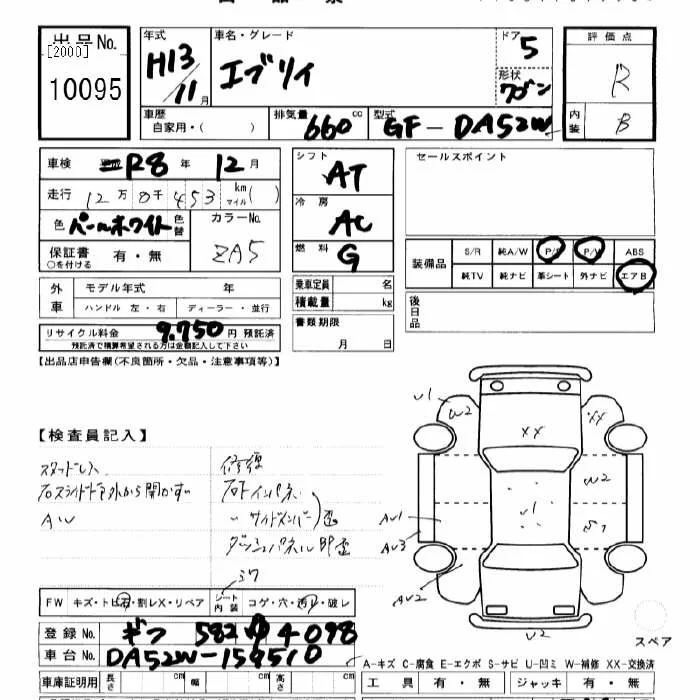 出品No.
[2000]
10095
年式
H13/11月
車名・グレード
エブリイ
ドア
5
形状
ワゴン
評価点
R
内装
B
車歴
自家用・( )
排気量
660cc
型式
GF-DA52W
車検
R8年12月
走行
12万0千453km マイル( )
色
パールホワイト
色替
カラーNo.
ZA5
保証書 有・無
○を付ける
外車
モデル年式 年
ハンドル 左・右 ディーラー・並行
リサイクル料金
9,750円 預託済
預託済で積算希望される方は金額記入して下さい
シフト
AT
冷房
AC
燃料
G
乗車定員 名
積載量 kg
書類期限
月 日
セールスポイント
装備品
S/R 純A/W P/S P/W ABS
純TV 純ナビ 革シート 外ナビ エアB
後日品
【出品店申告欄(不良箇所・欠品・注意事項等)】
【検査員記入】
スタッドレス
右スライドドア外から開かず
AW
修復
右インパネ
〃サイドメンバー 歪
ダッシュパネル凹歪
U1
W2
XX
XX
W2
U1
S1
AU1
AU3
AU2
U2
スペア
FW キズ・トビ石・割レX・リペア
シート内装 コゲ・穴・汚レ・破レ
登録No.
ギフ 582 ゆ 4098
車台No.
DA52W-154510
車庫証明用
長さ cm 幅 cm 高さ cm
A-キズ C-腐食 E-エクボ S-サビ U-凹ミ W-補修 XX-交換済
工具 有・無 ジャッキ 有・無